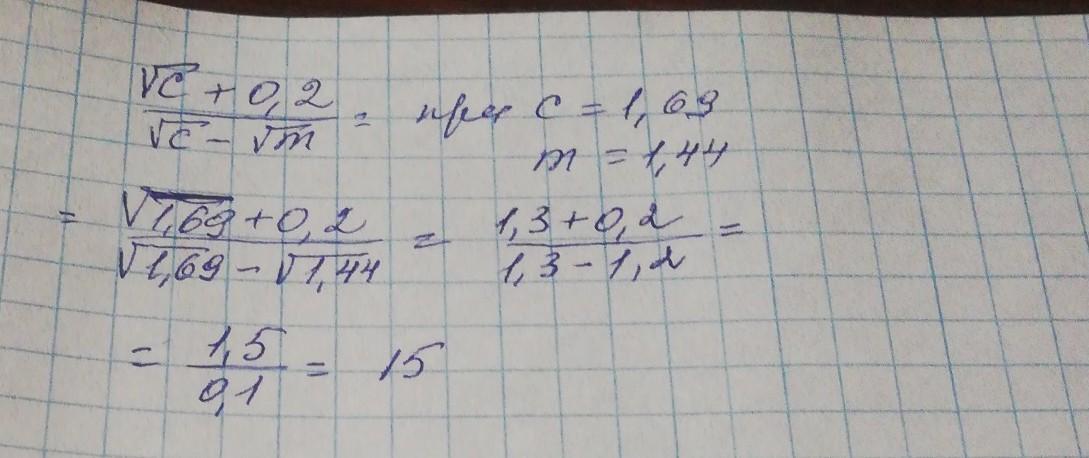 (√c + 0,2)/(√c − √m) = при c = 1,69
m = 1,44
= (√1,69 + 0,2)/(√1,69 − √1,44) = (1,3 + 0,2)/(1,3 − 1,2) =
= 1,5/0,1 = 15